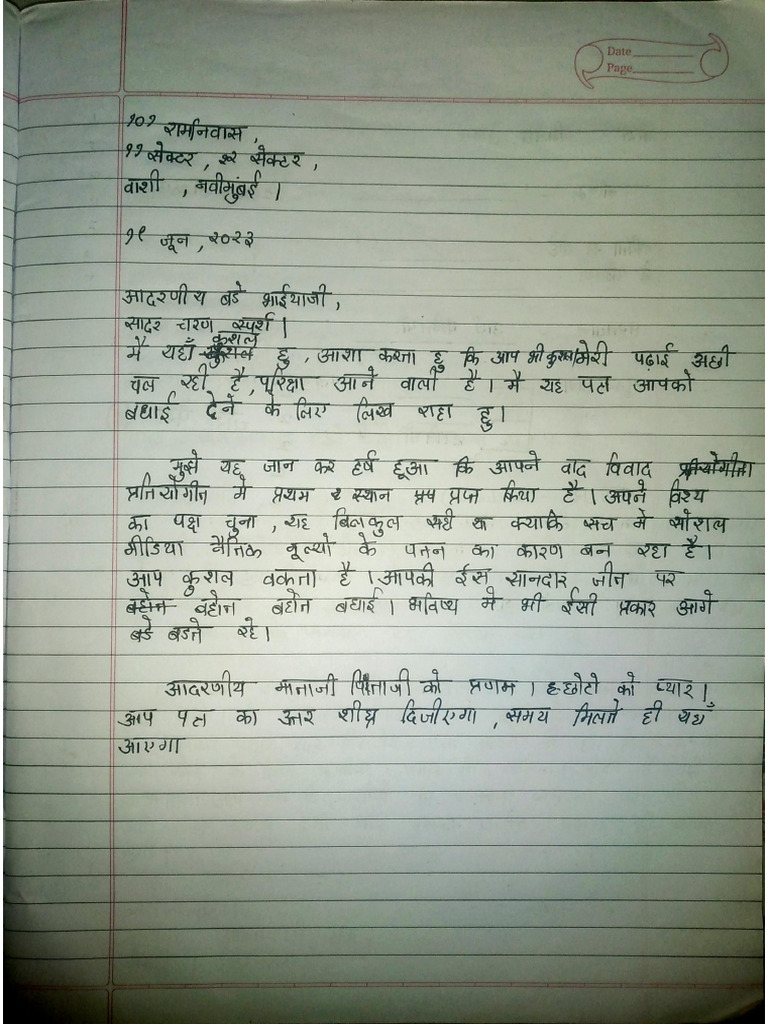 Date
Page
१०१ रामनिवास ,
११ सेक्टर , सेक्टर ,
वाशी , नवीमुंबई ।
१९ जून , २०२३
आदरणीय बडे भाईयाजी ,
सादर चरण स्पर्श ।
मै यहाँ कुशल हु , आशा करता हु कि आप भी कुशल मेरी पढ़ाई अछी
चल रही है , परिक्षा आने वाली है । मै यह पत्त आपको
बधाई देने के लिए लिख राहा हु ।
मुझे यह जान कर हर्ष हूआ कि आपने वाद विवाद प्रतियोगीता
प्रतियोगीत मे प्रथम स्थान प्रप्त किया है । अपने विश्य
का पक्ष चुना , यह बिलकुल सही था क्योकि सच मे सोशल
मीडिया नैतिक मूल्यो के पतन का कारण बन रहा है ।
आप कुशल वकता है । आपकी ईस सानदार जीत पर
बहोत बहोत बहोत बधाई । भविष्य मे भी ईसी प्रकार आगे
बडे बडते रहे ।
आदरणीय माताजी पिताजी को प्रणम । छोटो को प्यार ।
आप पत्त का उत्तर शीघ्र दिजीएगा , समय मिलते ही यहाँ
आएगा